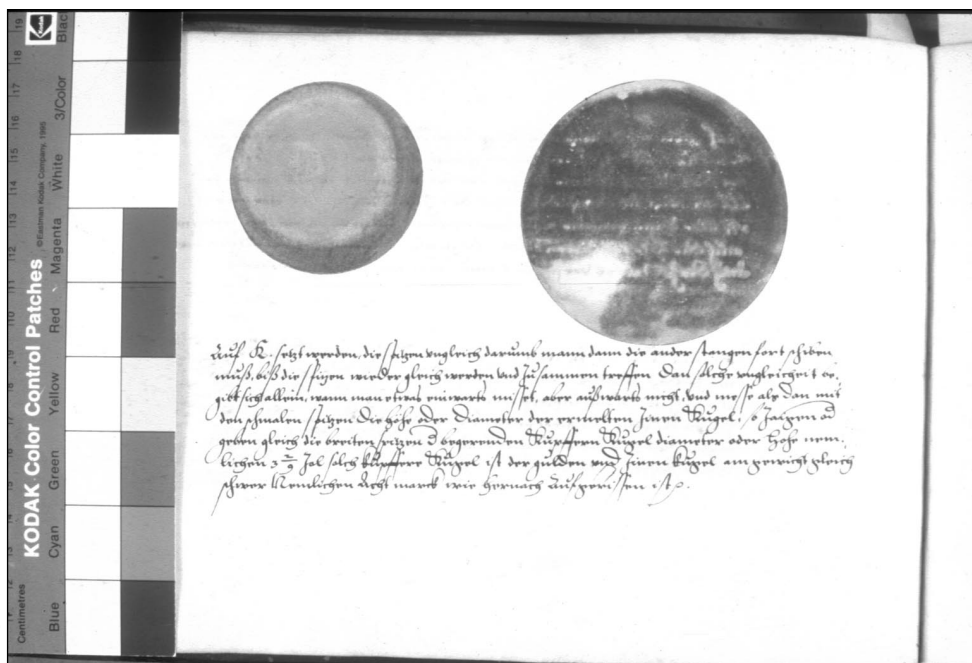 KODAK Color Control Patches
©Eastman Kodak Company, 1995
Kodak
Centimetres
Blue
Cyan
Green
Yellow
Red
Magenta
White
3/Color
Black
Auf K. setzt werden, die spitzen ungleich darumb mann dann die ander stangen fort schiben
muß, biß die spizen wieder gleich werden vnd zusammen treffen dan solche vngleicheit
gibt sich allein, wann man etwas einwarts misset, aber außwarts nicht, vnd messe als dan mit
den schmalen spitzen die höhe oder diameter der ermelten zinen Kugel, so zaigen
geben gleich die breiten spitzen d begerenden Kupffern Kugel diameter oder höhe nem
lichen 3 2/9 zol solch kupffere Kugel ist der gulden vnd zinen kugel am gewicht gleich
schwer Nemlichen Acht marck wie hernach Aufgerissen ist